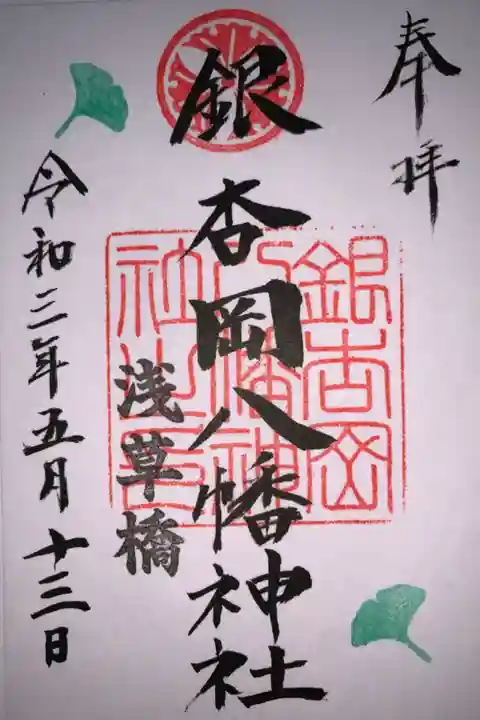 奉拝
銀杏岡八幡神社
銀杏岡
八幡神
社之印
浅草橋
令和三年五月十三日